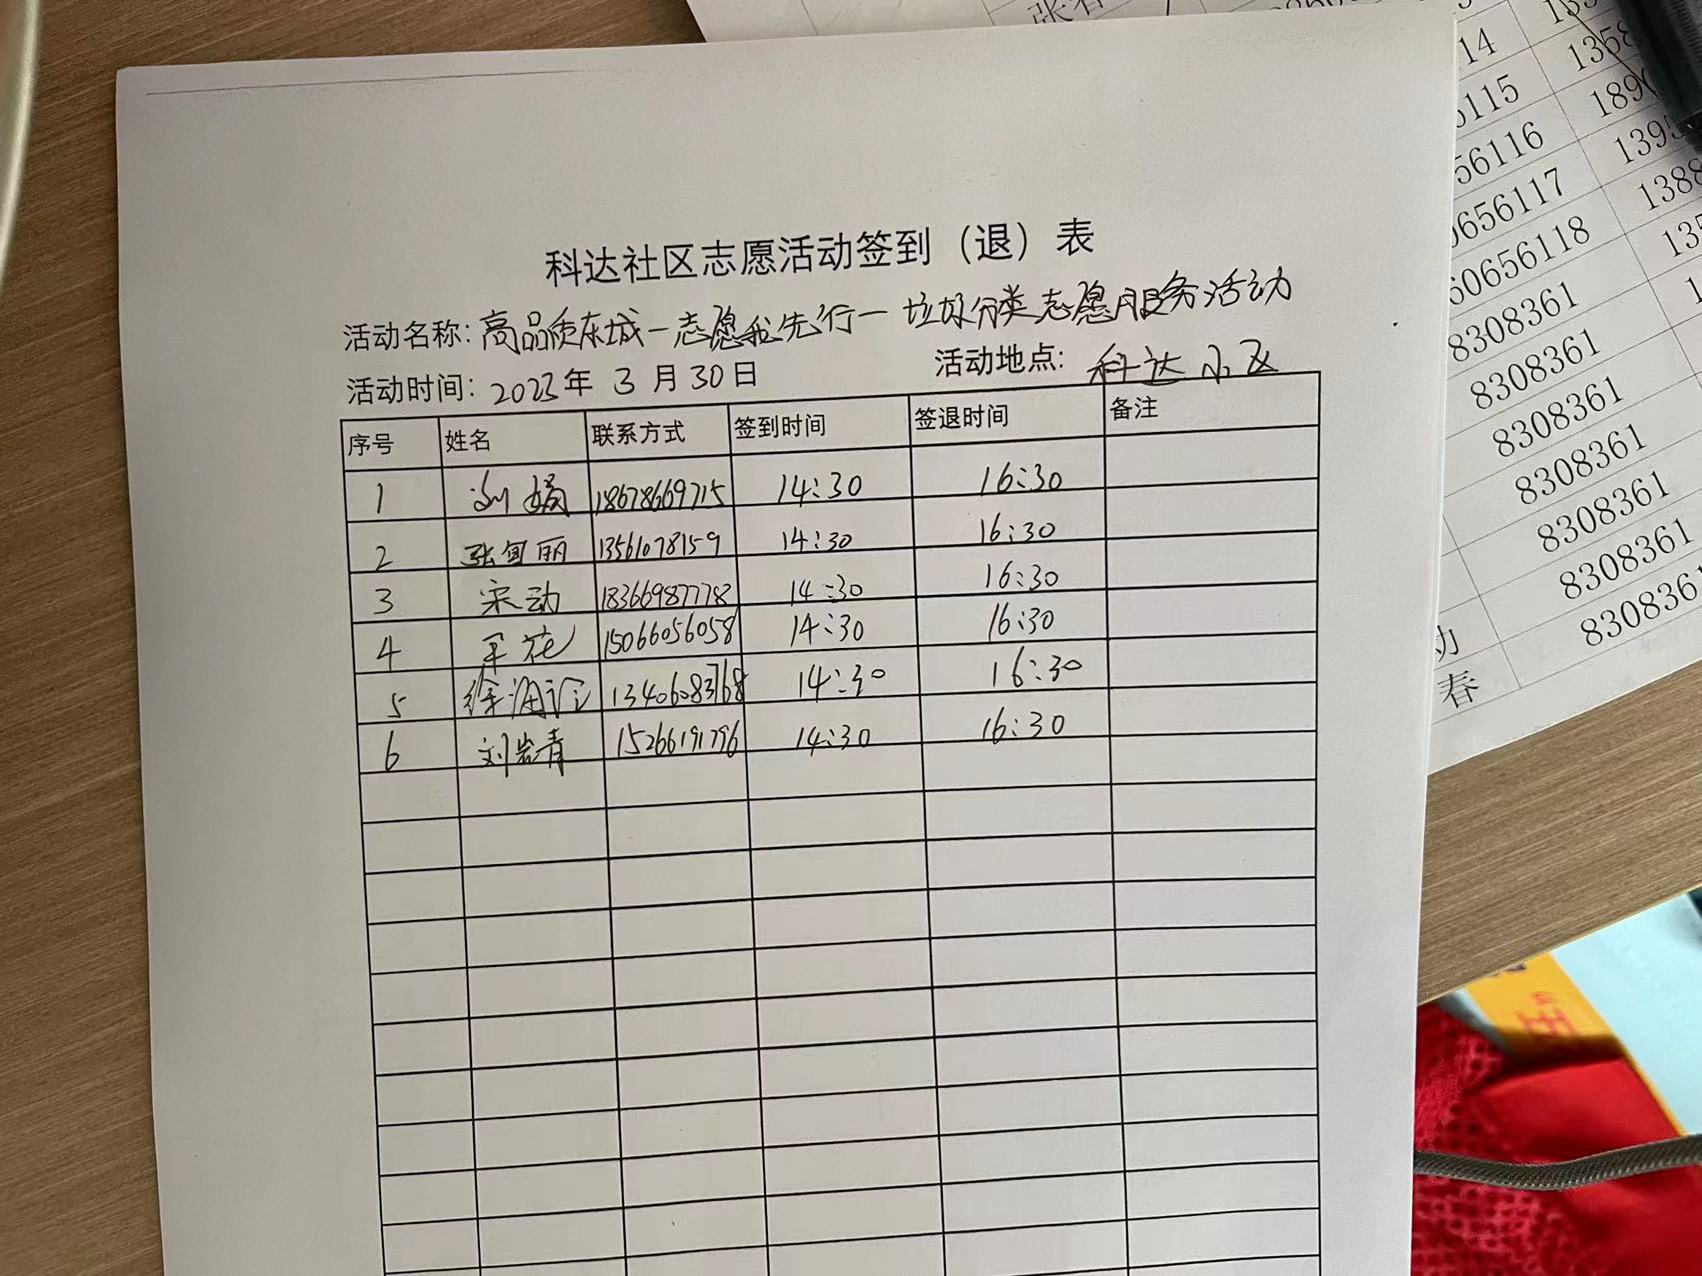 科达社区志愿活动签到（退）表
活动名称: 高品质东城一志愿我先行一垃圾分类志愿服务活动
活动时间: 2023年 3 月 30 日 活动地点: 科达小区
序号 姓名 联系方式 签到时间 签退时间 备注
1 刘娟 18678669715 14:30 16:30
2 张宜丽 13561078159 14:30 16:30
3 宋动 18366987778 14:30 16:30
4 花 15066056058 14:30 16:30
5 徐海 13406083768 14:30 16:30
6 刘岩青 15266191796 14:30 16:30
14
6115
56116
0656117
60656118
8308361
8308361
8308361
8308361
8308361
8308361
830836
春
1358
189
139
1388
135